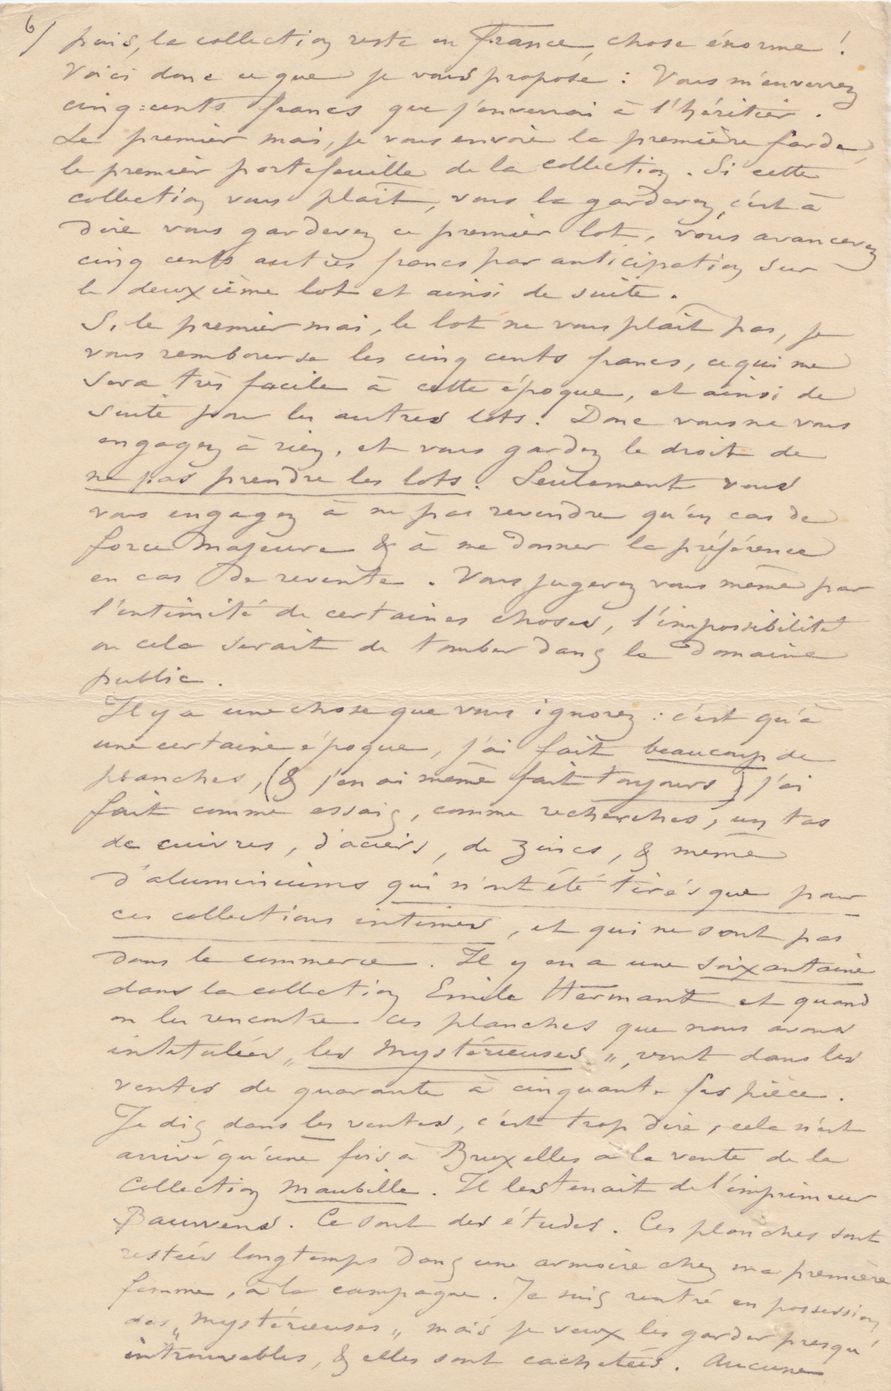 6/ puis, la collection reste en France, chose énorme !
Voici donc ce que je vous propose : Vous m'enverrez
cinq-cents francs que j'enverrai à l'héritier.
Le premier mai, je vous envoie la première farde,
le premier portefeuille de la collection. Si cette
collection vous plaît, vous la garderez, c'est à
dire vous garderez ce premier lot, vous avancerez
cinq cents autres francs par anticipation sur
le deuxième lot et ainsi de suite.
Si le premier mai, le lot ne vous plaît pas, je
vous rembourse les cinq cents francs, ce qui me
sera très facile à cette époque, et ainsi de
suite pour les autres lots. Donc vous ne vous
engagez à rien, et vous gardez le droit de
ne pas prendre les lots. Seulement vous
vous engagez à ne pas revendre qu'en cas de
force majeure & à me donner la préférence
en cas de revente. Vous jugerez vous même par
l'intimité de certaines choses, l'impossibilité
ou cela serait de tomber dans le domaine
public.
Il y a une chose que vous ignorez : c'est qu'à
une certaine époque, j'ai fait beaucoup de
planches, (& j'en ai même fait toujours) j'ai
fait comme essais, comme recherches, un tas
de cuivres, d'aciers, de zincs, & même
d'aluminiums qui n'ont été tirés que pour
ces collections intimes, et qui ne sont pas
dans le commerce. Il y en a une soixantaine
dans la collection Emile Hermant et quand
on les rencontre ces planches que nous avons
intitulées „les Mystérieuses„, vont dans les
ventes de quarante à cinquante frs pièce.
Je dis dans les ventes, c'est trop dire, cela n'est
arrivé qu'une fois à Bruxelles à la vente de la
Collection Maubille. Il les tenait de l'imprimeur
Bauwens. Ce sont des études. Ces planches sont
restées longtemps dans une armoire chez ma première
femme, à la campagne. Je suis rentré en possession
des „Mystérieuses„ mais je veux les garder presqu'
introuvables, & elles sont cachetées. Aucune